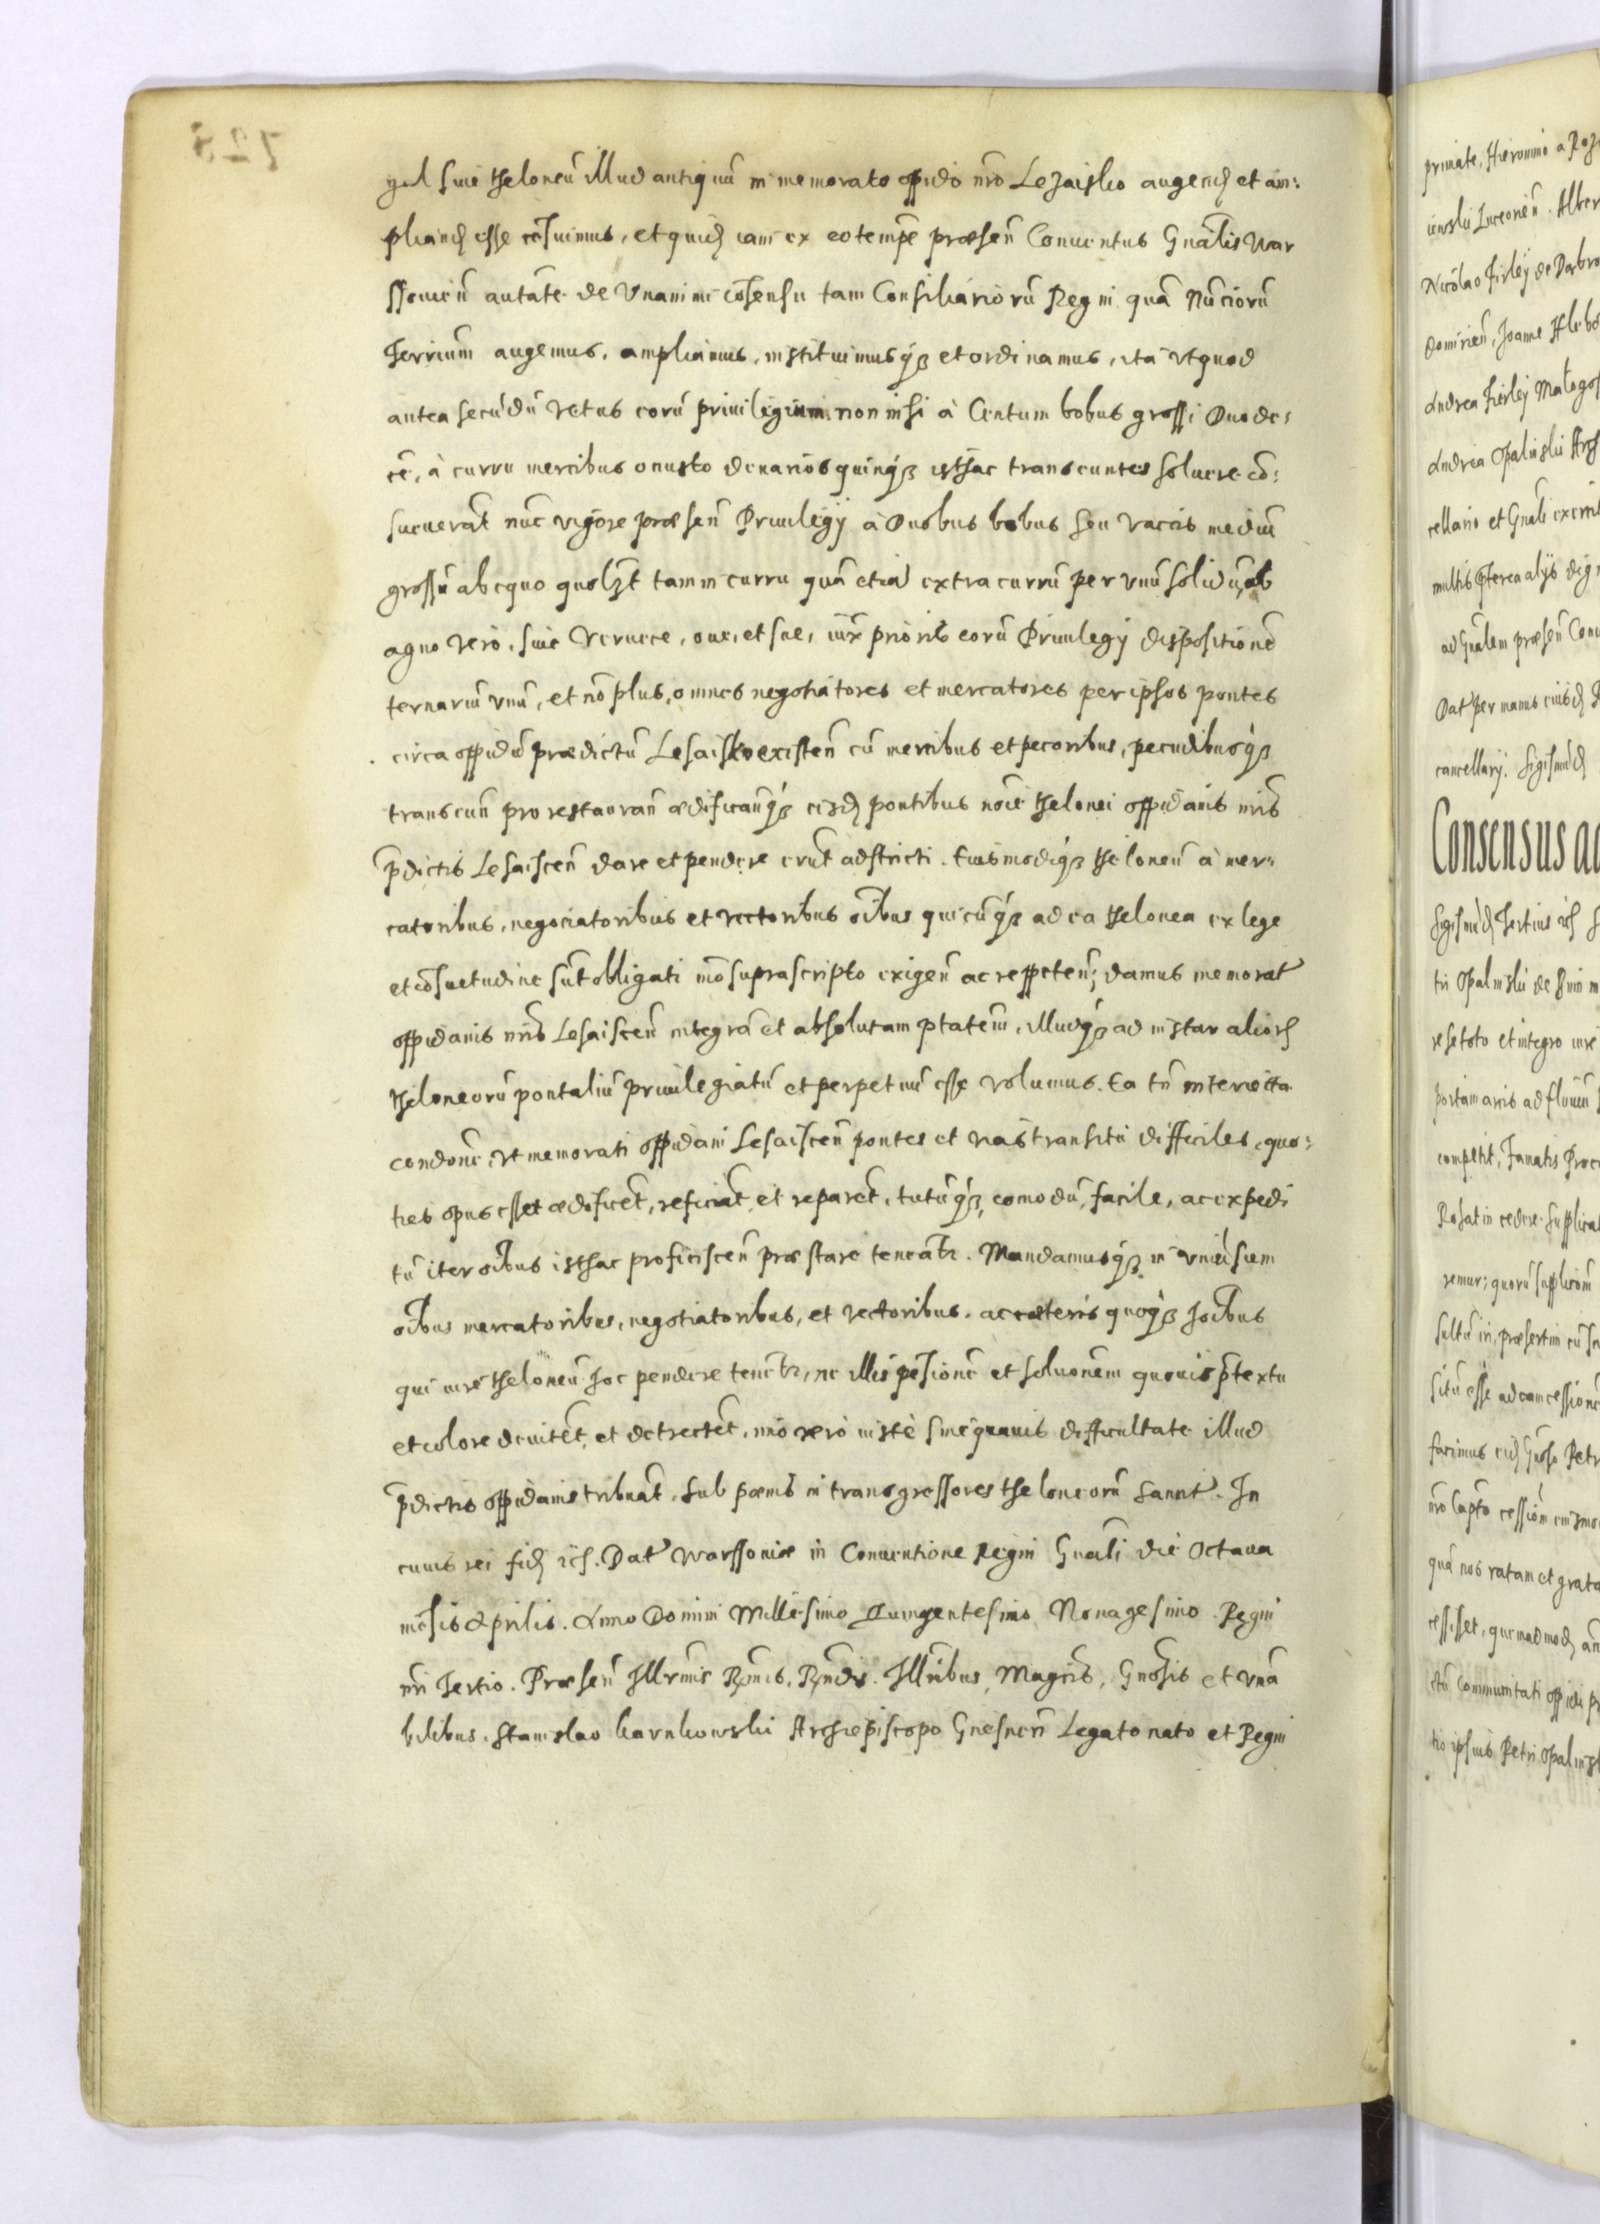 gal siue theloneũ illud antiquũ in memorato oppido nro Lezaisko augend et am:
pliand esse cẽsuimus, et quid iam ex eo tempe præsen Conuentus Gnalis War
ssouien autate de vnanimi cõsensu tam Consiliariorũ Regni quã Nũciorũ
Terrium augemus, ampliamus, instituimusq et ordinamus, ita vt quod
antea secũdũ vetus eorũ priuilegium non nisi à Centum bobus grossi Duode:
cẽ, à curru mercibus onusto denarios quinq isthac transeuntes soluere cõ:
sueuerãt nũc vigore præsen Priuilegij à Duobus bobus seu vaccis mediũ
grossũ ab equo quolzt tam in curru quã etiã extra currũ per vnũ solidũ, ab
agno vero, siue veruece, oue, et sue, iux prioris eorũ Priuilegij dispositionẽ
ternariũ vnũ, et nõ plus, omnes negotiatores et mercatores per ipsos pontes
circa oppidũ prædictũ Lesaisko existen cũ mercibus et pecoribus, pecudibusq
transeun pro restauran ædificanq eisd pontibus noie thelonei oppidanis nris
pdictis Lesaiscen dare et pendere erũt adstricti. Eiusmodiq theloneũ à mer:
catoribus, negociatoribus et vectoribus oibus quicũq ad ea thelonea ex lege
et cõsuetudine sũt obligati mõ suprascripto exigen ac reppeten; damus memorat
oppidanis nris Lesaiscen integrã et absolutam ptatem, illudq ad instar alior
theloneorũ pontaliũ priuilegiatũ et perpetuũ esse volumus. Ea tñ interiecta
condone, vt memorati oppidani Lesaiscen pontes et vias transitu difficiles, quo:
ties opus esset ædificẽt, reficiãt, et reparẽt, tutũq, comodũ, facile, ac expedi
tũ iter oibus isthac proficiscen præstare teneãtr. Mandamusq in vniuersum
oibus mercatoribus, negotiatoribus, et vectoribus, ac cæteris quoq hoibus
qui iure theloneũ hoc pendere tenetr, ne illi pẽsione et soluonem quouis ptextu
et colore deuitẽt, et detrectẽt, imo vero iuste sine quauis difficultate illud
pdictis oppidanis tribuãt, sub pœnis in transgressores theloneorũ sancit. In
cuius rei fid ich. Dat Warssouiæ in Conuentione Regni Gnali die Octaua
mẽsis Aprilis. Anno Domini Millesimo Quingentesimo Nonagesimo. Regni
nri Tertio. Præsen Illrmis Rmis, Rndis. Illribus, Magcis, Gnosis et vna
bilibus, Stanislao Karnkowski Archiepiscopo Gnesnen Legato nato et Regni
primate, Hieronimo a Roz
Nicolao Firley de Dabro
Andrea Firley
Andrea Opalinski
cellario et Gnali
multis pterea alijs
ad Gnalem præsen Conu
Dat per manus eiusd
cancellarij. Sigismũd
Consensus ad
Sigismũd Tertius ich
tri Opalinski de Bnin
re se toto et integro iure
remur; quorũ
situ esse ad eam cessionẽ
facimus eid Gnoso Petr
quã nos ratam et grata
cessisset, quemadmod
communitati oppidi
tio ipsius Petri Opalinsk